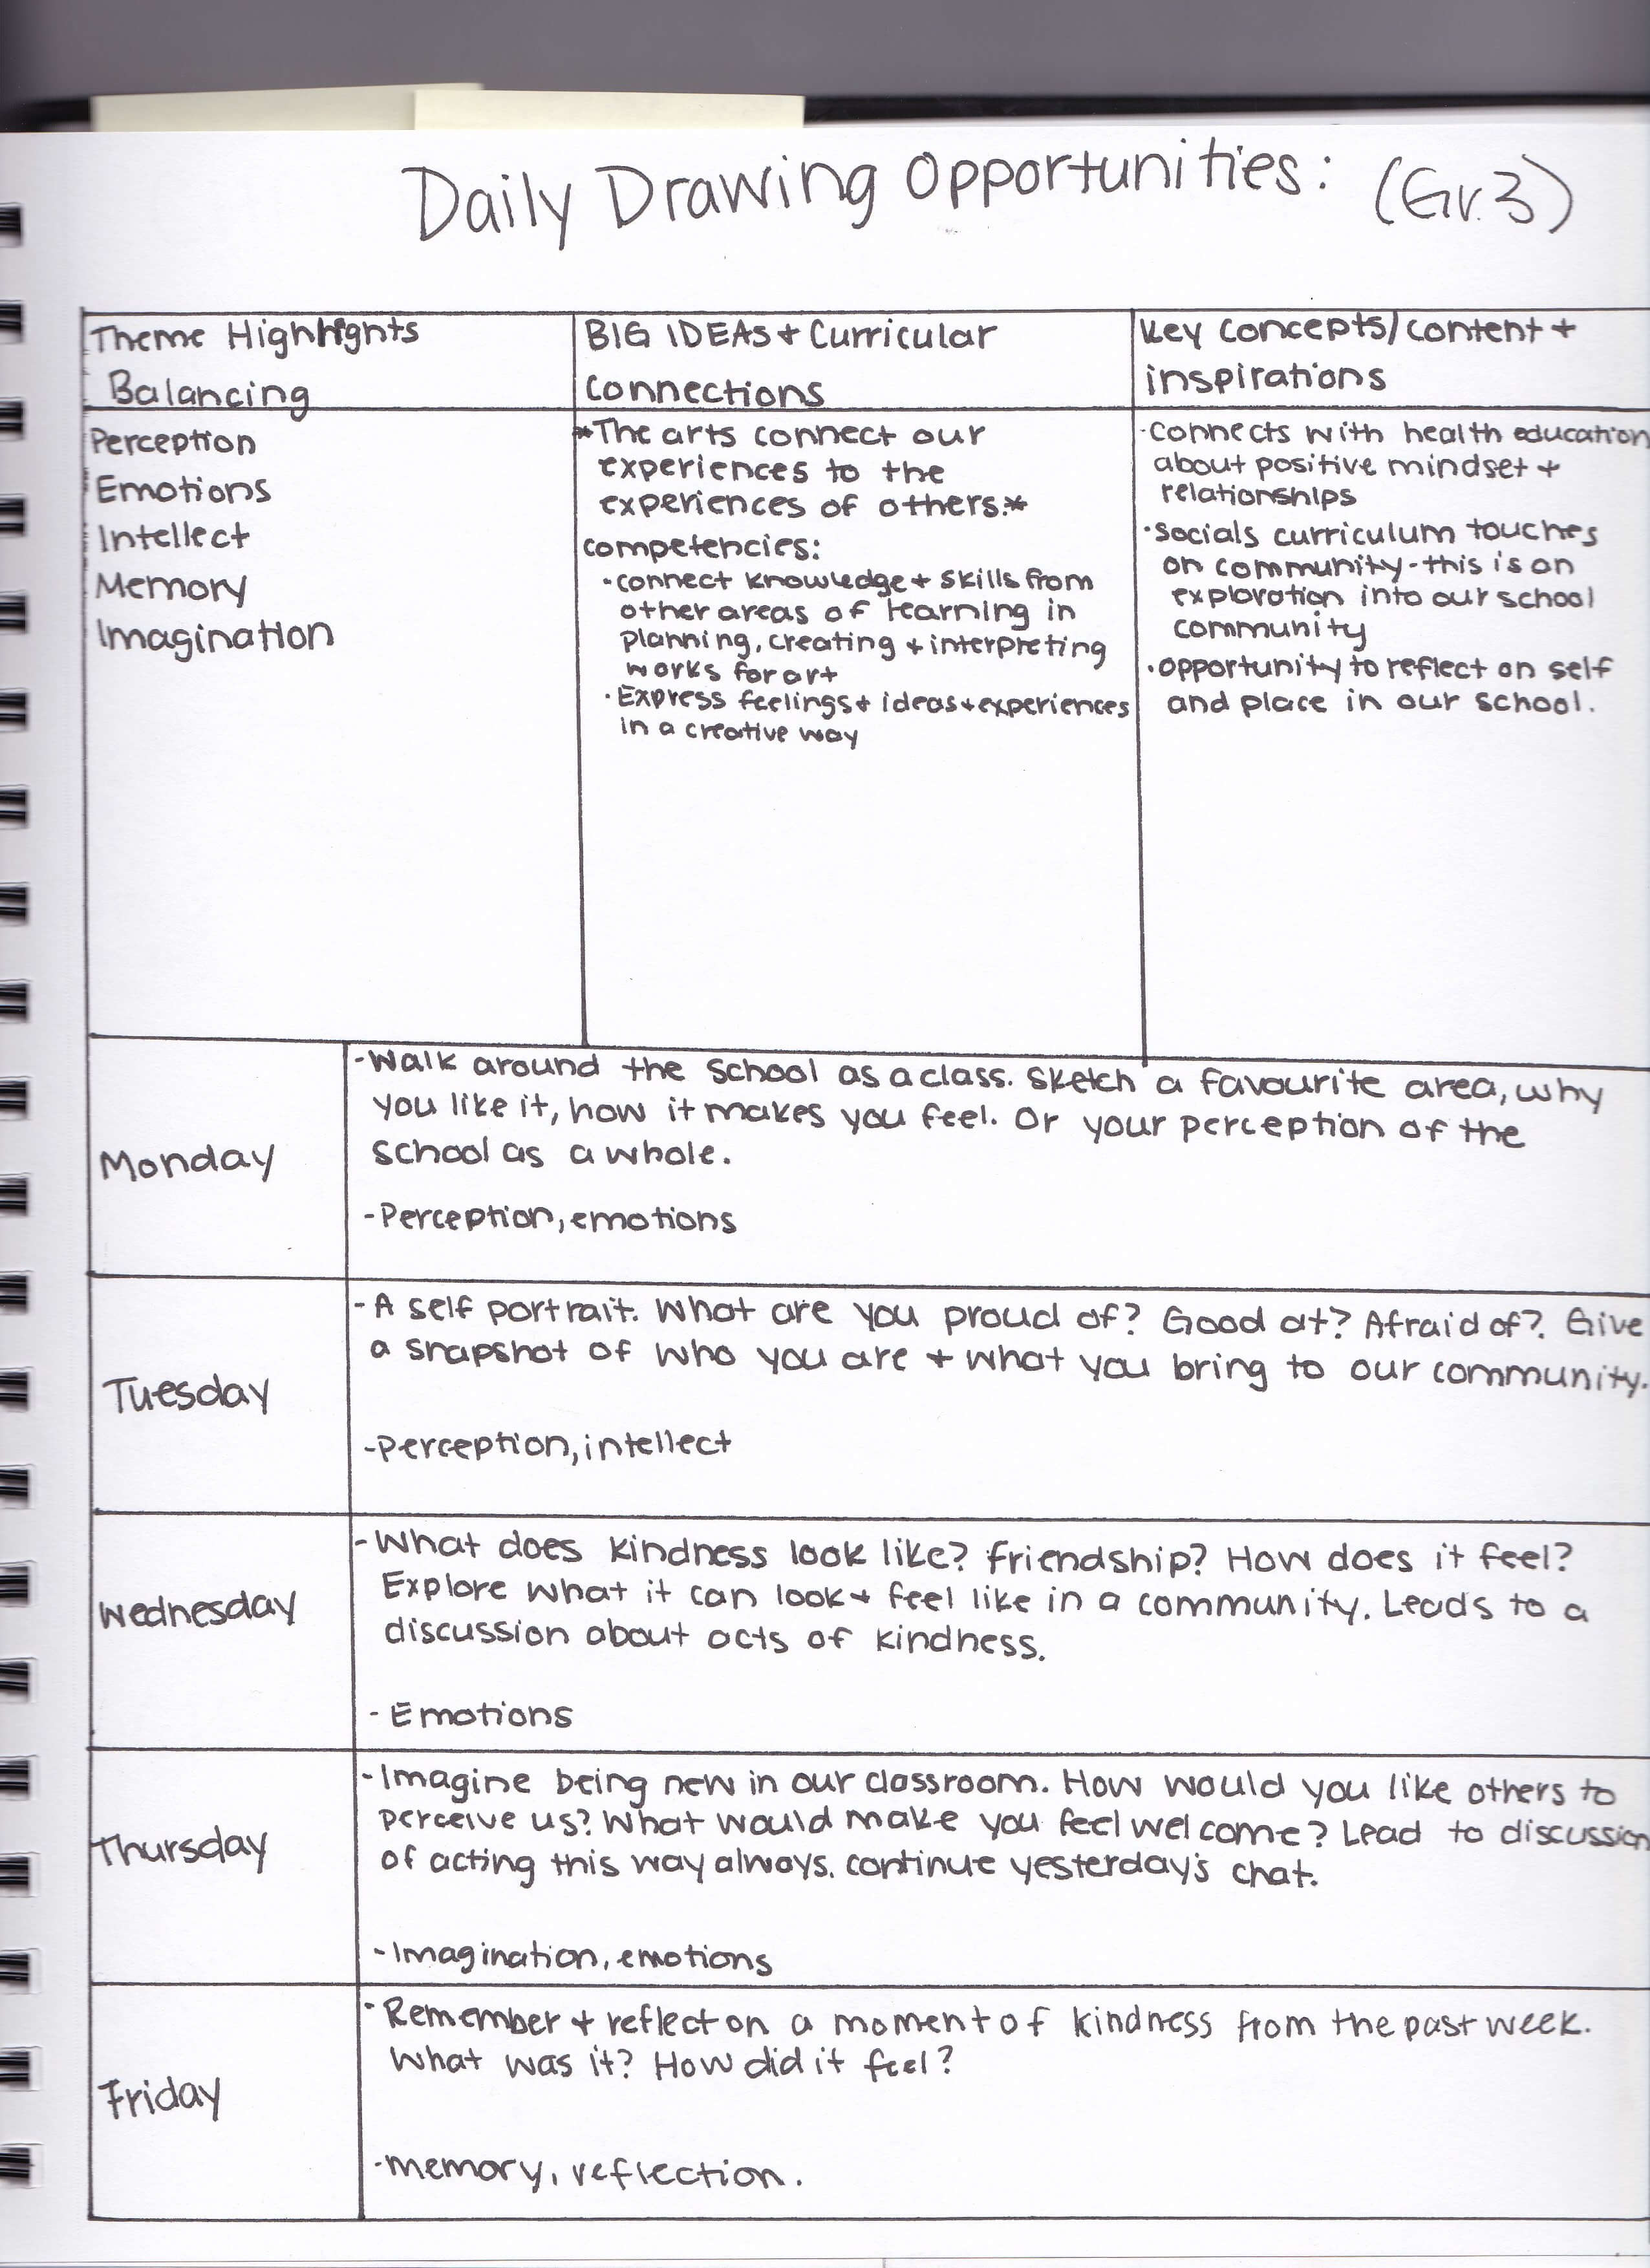 Daily Drawing Opportunities: (Gr.3)
Theme Highlights
Balancing
BIG IDEAS + Curricular
Connections
Key Concepts/content +
inspirations
Perception
Emotions
Intellect
Memory
Imagination
*The arts connect our
experiences to the
experiences of others.*
Competencies:
·connect knowledge + skills from
other areas of learning in
planning, creating + interpreting
works for art
·Express feelings + ideas + experiences
in a creative way
·connects with health education
about positive mindset +
relationships
·socials curriculum touches
on community - this is an
exploration into our school
community
·opportunity to reflect on self
and place in our school.
Monday
-Walk around the school as a class. Sketch a favourite area, why
you like it, how it makes you feel. Or your perception of the
school as a whole.
-Perception, emotions
Tuesday
-A self portrait. What are you proud of? Good at? Afraid of? Give
a snapshot of who you are + what you bring to our community.
-perception, intellect
Wednesday
-What does kindness look like? friendship? How does it feel?
Explore what it can look + feel like in a community. Leads to a
discussion about acts of kindness.
- Emotions
Thursday
-Imagine being new in our classroom. How would you like others to
perceive us? What would make you feel welcome? Lead to discussion
of acting this way always. continue yesterday's chat.
-Imagination, emotions
Friday
·Remember + reflect on a moment of kindness from the past week.
What was it? How did it feel?
-memory, reflection.